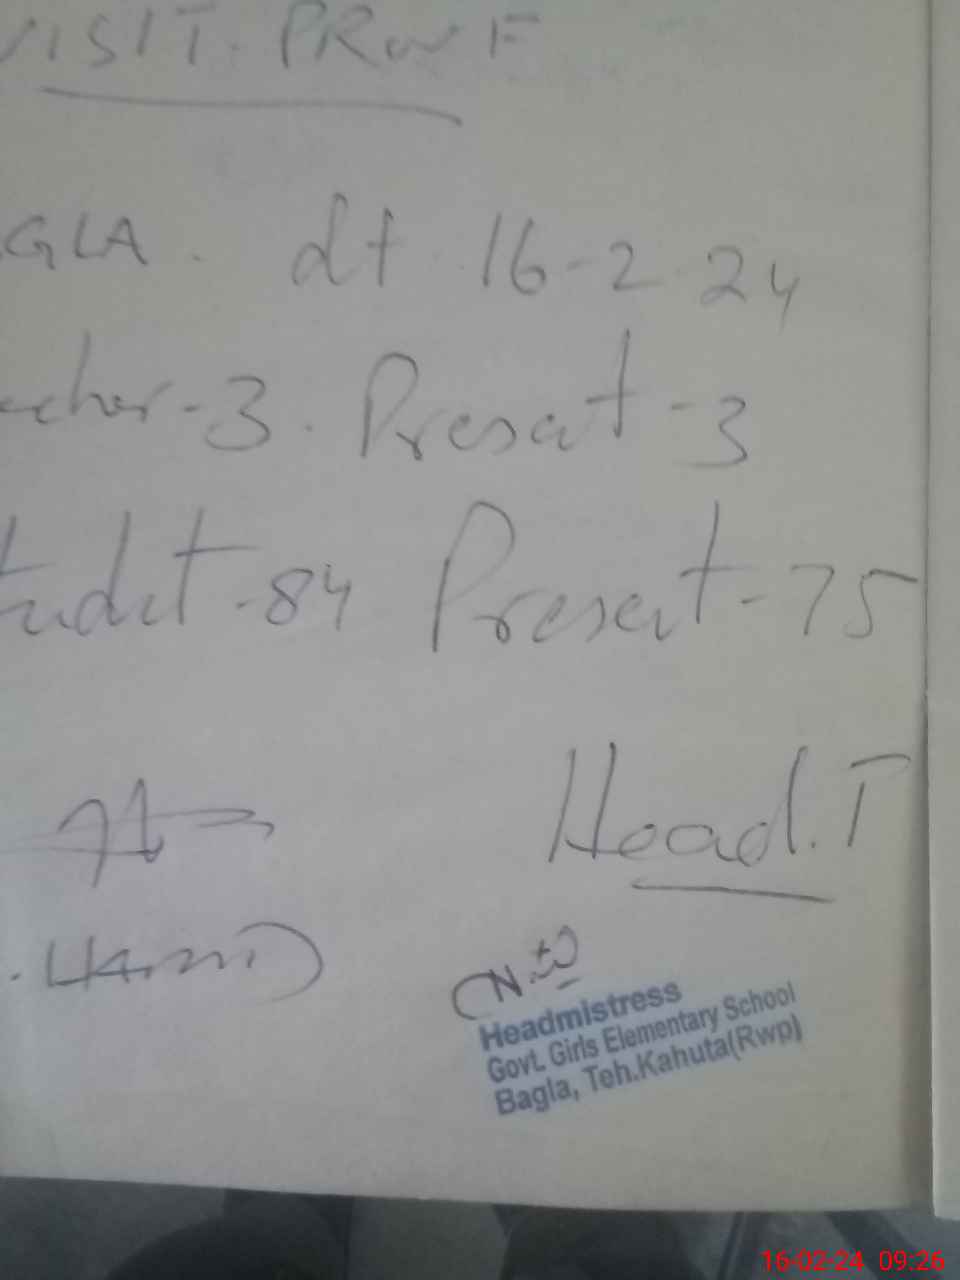 VISIT. PROOF
GLA. dt 16-2-24
acher-3. Present-3
tudent-84 Present-75
Head.T
HAMID
Headmistress
Govt. Girls Elementary School
Bagla, Teh.Kahuta(Rwp)
16-02-24 09:26